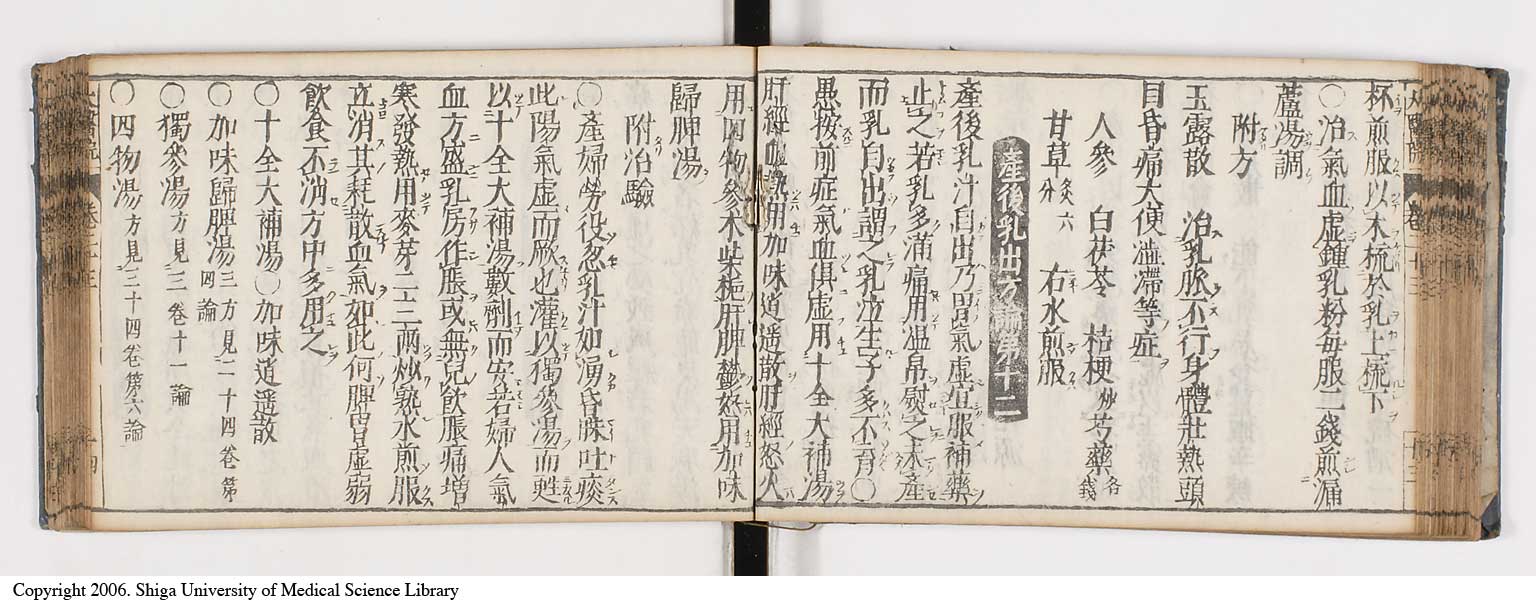 杯煎服以木梳於乳上梳下
○治氣血虛鍾乳粉每服二錢煎漏
蘆湯調
附方
玉露散 治乳脹不行身體壯熱頭
目昏痛大便澁滯等症
人參 白茯苓 桔梗炒 芍藥各一錢
甘草炙六分 右水煎服
產後乳出方論第十二
產後乳汁自出乃胃氣虛宜服補藥
止之若乳多滿痛用溫帛熨之未產
而乳自出謂之乳泣生子多不育○
愚按前症氣血俱虛用十全大補湯
肝經血熱用加味逍遥散肝經怒火
用四物參朮柴梔肝脾鬱怒用加味
歸脾湯
附治驗
○產婦勞役忽乳汁如湧昏昧吐痰
此陽氣虛而厥也灌以獨參湯而甦
以十全大補湯數劑而安若婦人氣
血方盛乳房作脹或無兒飲脹痛增
寒發熱用麥芽二三兩炒熟水煎服
立消其耗散血氣如此何脾胃虛弱
飲食不消方中多用之
○十全大補湯○加味逍遥散
○加味歸脾湯三方見二十四卷第四論
○獨參湯方見三卷十一論
○四物湯方見三十四卷第六論
Copyright 2006. Shiga University of Medical Science Library